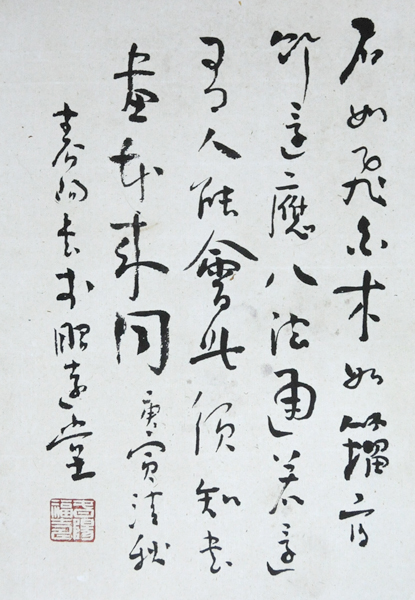 石如飛白木如籀寫
竹還應八法通若還
有人能會此須知書
畫本來同庚寅清秋
書於昭遠堂